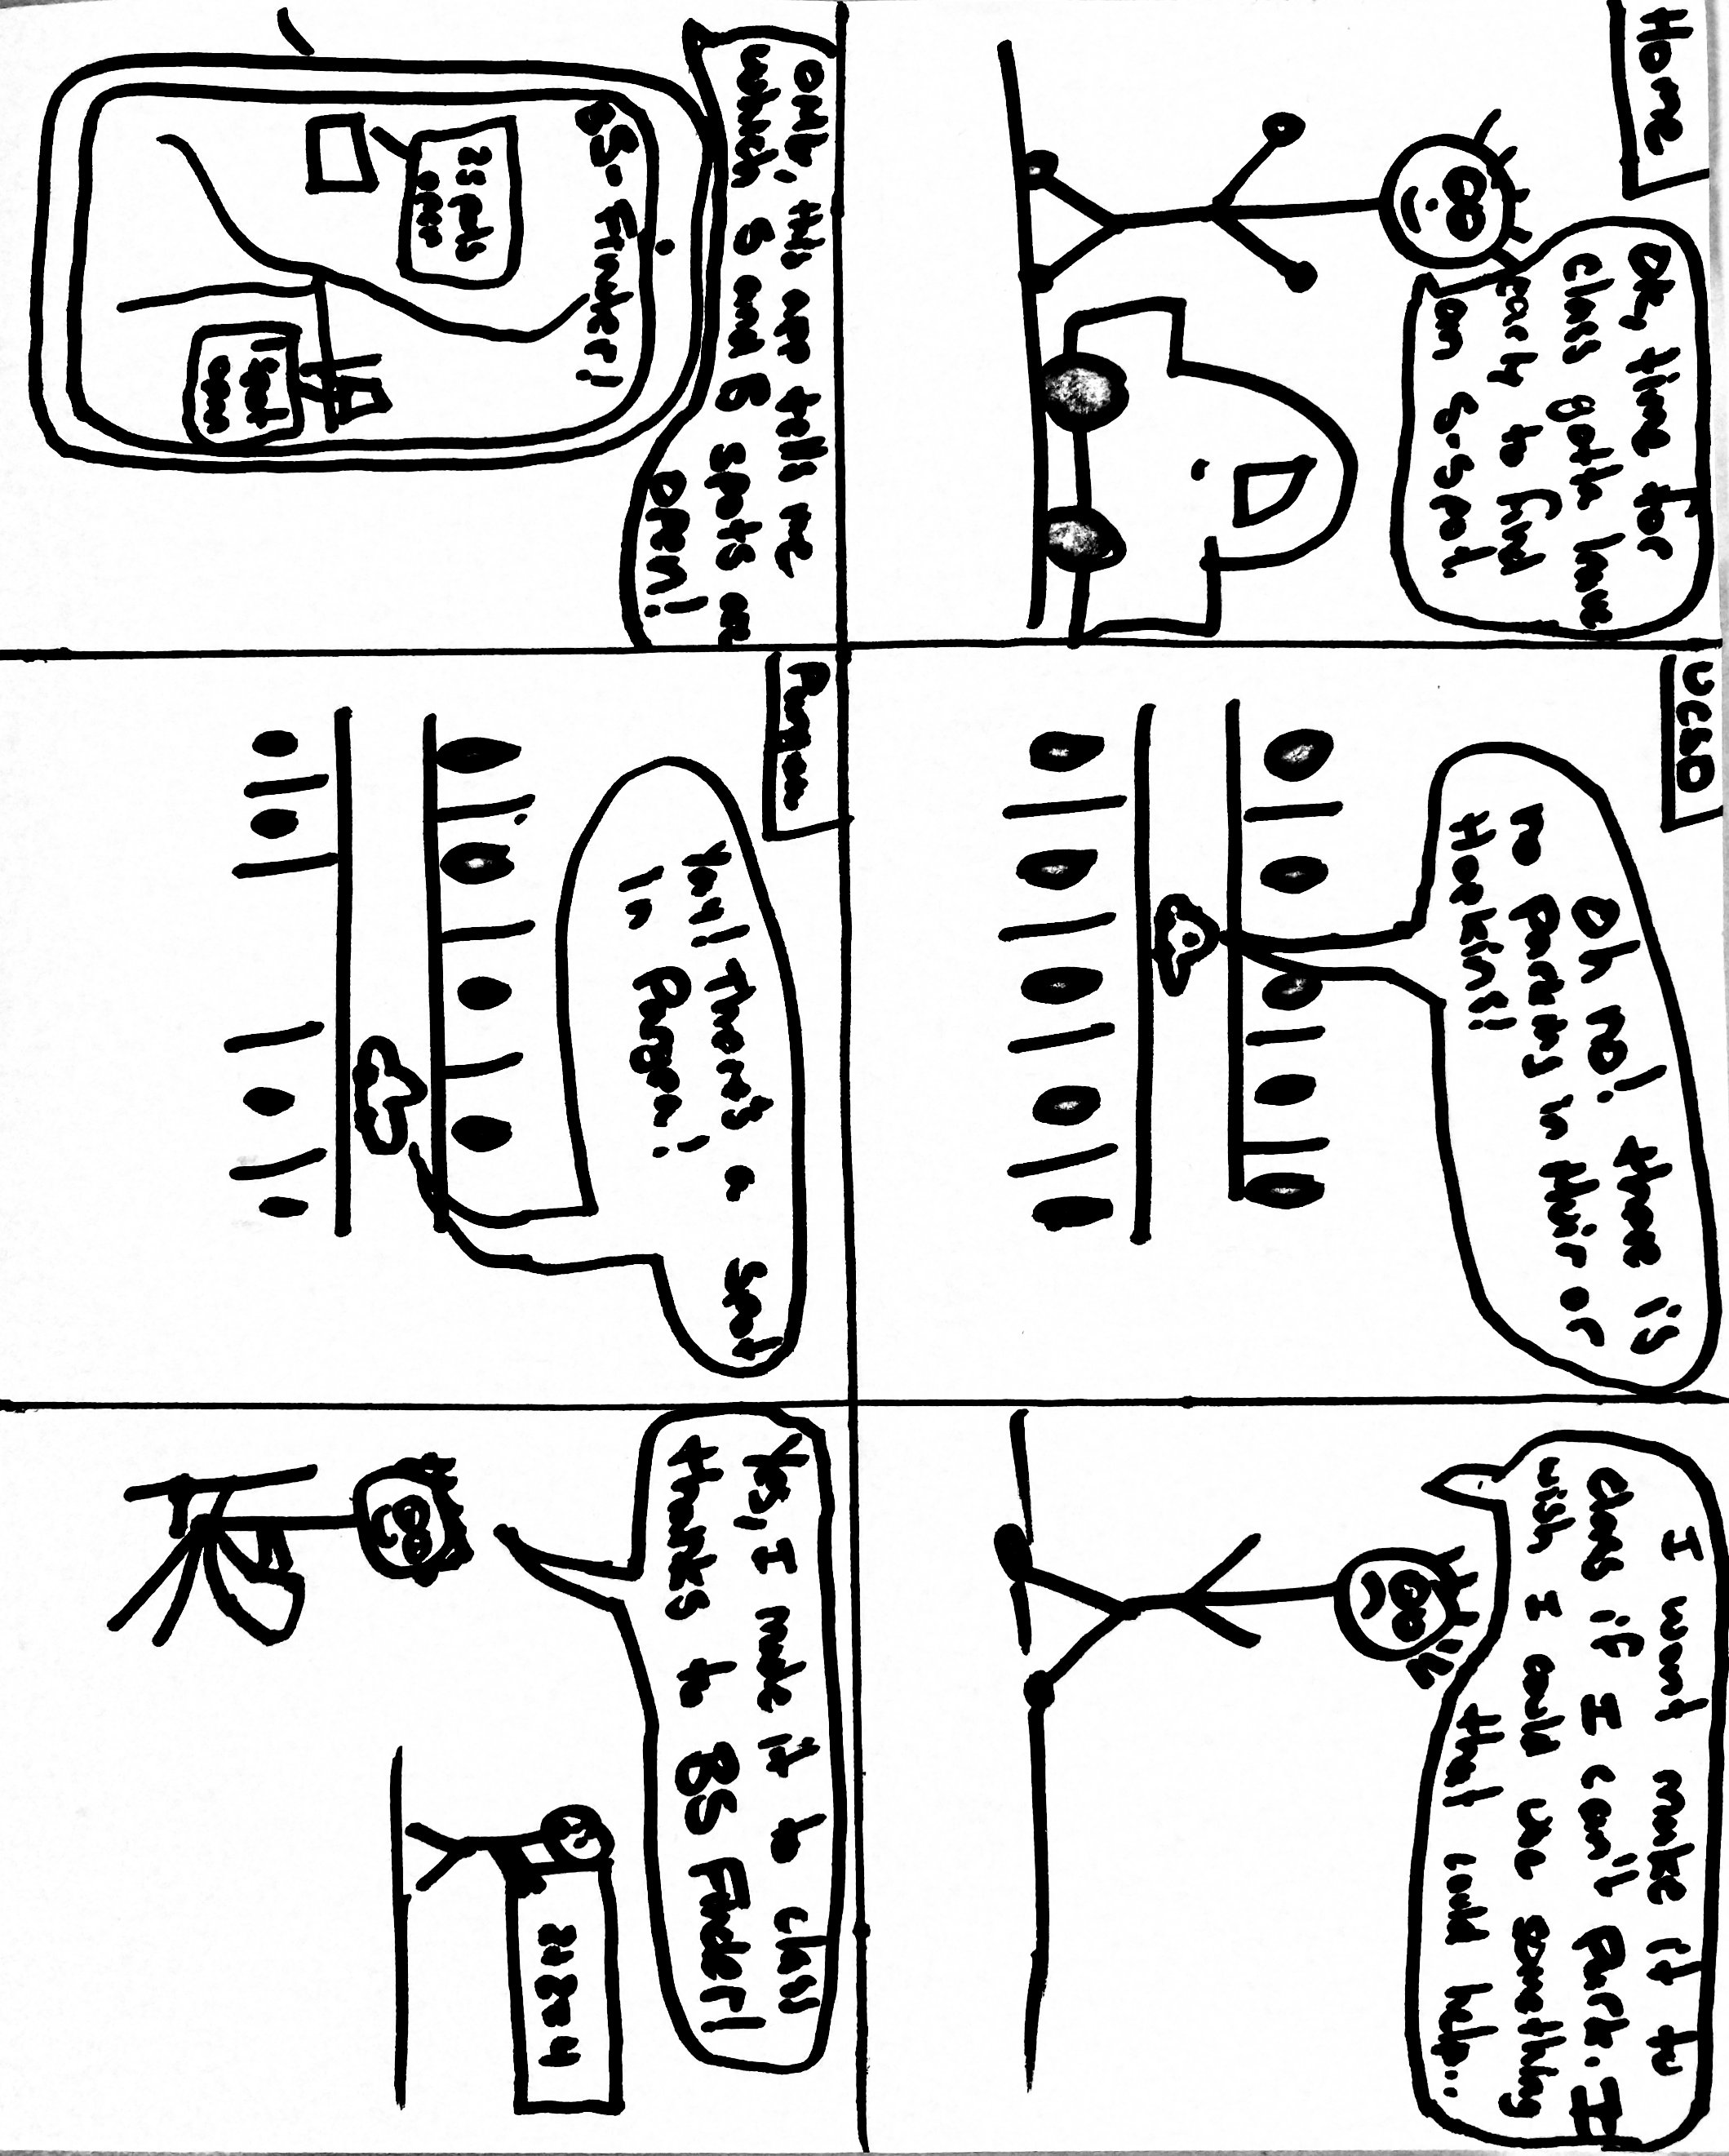 Home
Ok, time for
class gotta leave
early to find
an S-spot.
UCSD
Oh no! there is
no Parking in Muir or
Hopkins!
I wont make it to
class if I can't Park. I
wish I could use something
that could help..
OMG, this app tells me
which S and B spots are
open!
BS-Finder!
2 spots
open
1 spot
open
Pangea
Yay! There's a spot
in Pangea!
Yes, I made it to class
thanks to BS Finder!
2+2=4